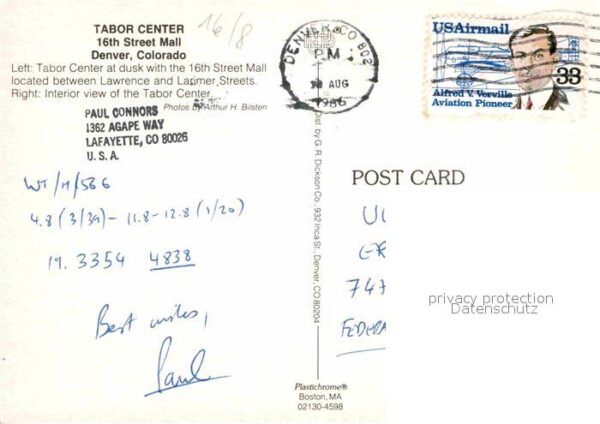 TABOR CENTER
16th Street Mall
Denver, Colorado
Left: Tabor Center at dusk with the 16th Street Mall
located between Lawrence and Larimer Streets.
Right: Interior view of the Tabor Center.
Photos by Arthur H. Bilsten
16/8
PAUL CONNORS
1362 AGAPE WAY
LAFAYETTE, CO 80026
U.S.A.
4.8 (3/39) - 11.8 - 12.8 (1/20)
3354 4838
Best wishes,
Paul
Dist. by G. R. Dickson Co., 932 Inca St., Denver, CO 80204
Plastichrome®
Boston, MA
02130-4598
DENVER, CO 802
PM
AUG
1986
USAirmail
33
Alfred V. Verville
Aviation Pioneer
POST CARD
747
FEDERA
privacy protection
Datenschutz